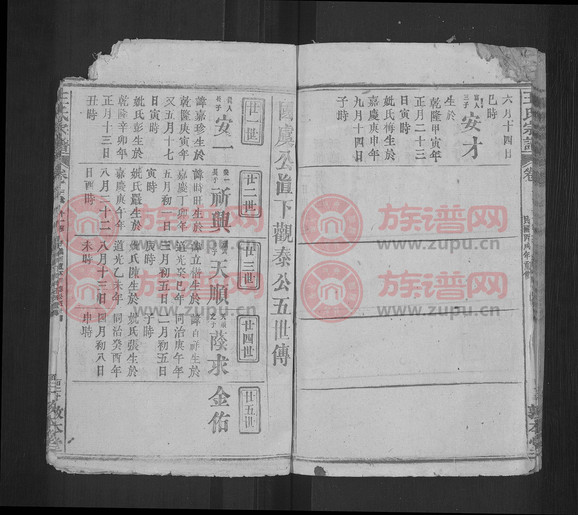 王氏宗譜
六月十四日
巳時
安才
生於
乾隆甲寅年
正月二十三
日寅時
妣氏梅生於
嘉慶庚申年
九月十四日
子時
敦本堂
國虞公直下觀泰公五世傳
廿一世
廿二世
廿三世
廿四世
廿五世
安一
諱嘉珍生於
乾隆庚寅年
又五月十七
日寅時
妣氏彭生於
乾隆辛卯年
正月十三日
丑時
祈興
嘉慶丁卯年
五月初二日
寅時
妣氏嚴生於
嘉慶庚午年
八月二十二
日酉時
天順
道光癸巳年
三月初五日
辰時
妣氏陳生於
道光乙未年
八月十三日
未時
蔭求
同治庚午年
二月初五日
子時
妣氏張生於
同治癸酉年
四月初八日
申時
金佑
王氏宗譜
敦本堂
族谱网
www.zupu.cn
族谱网
www.zupu.cn
族谱网
www.zupu.cn
族谱网
www.zupu.cn